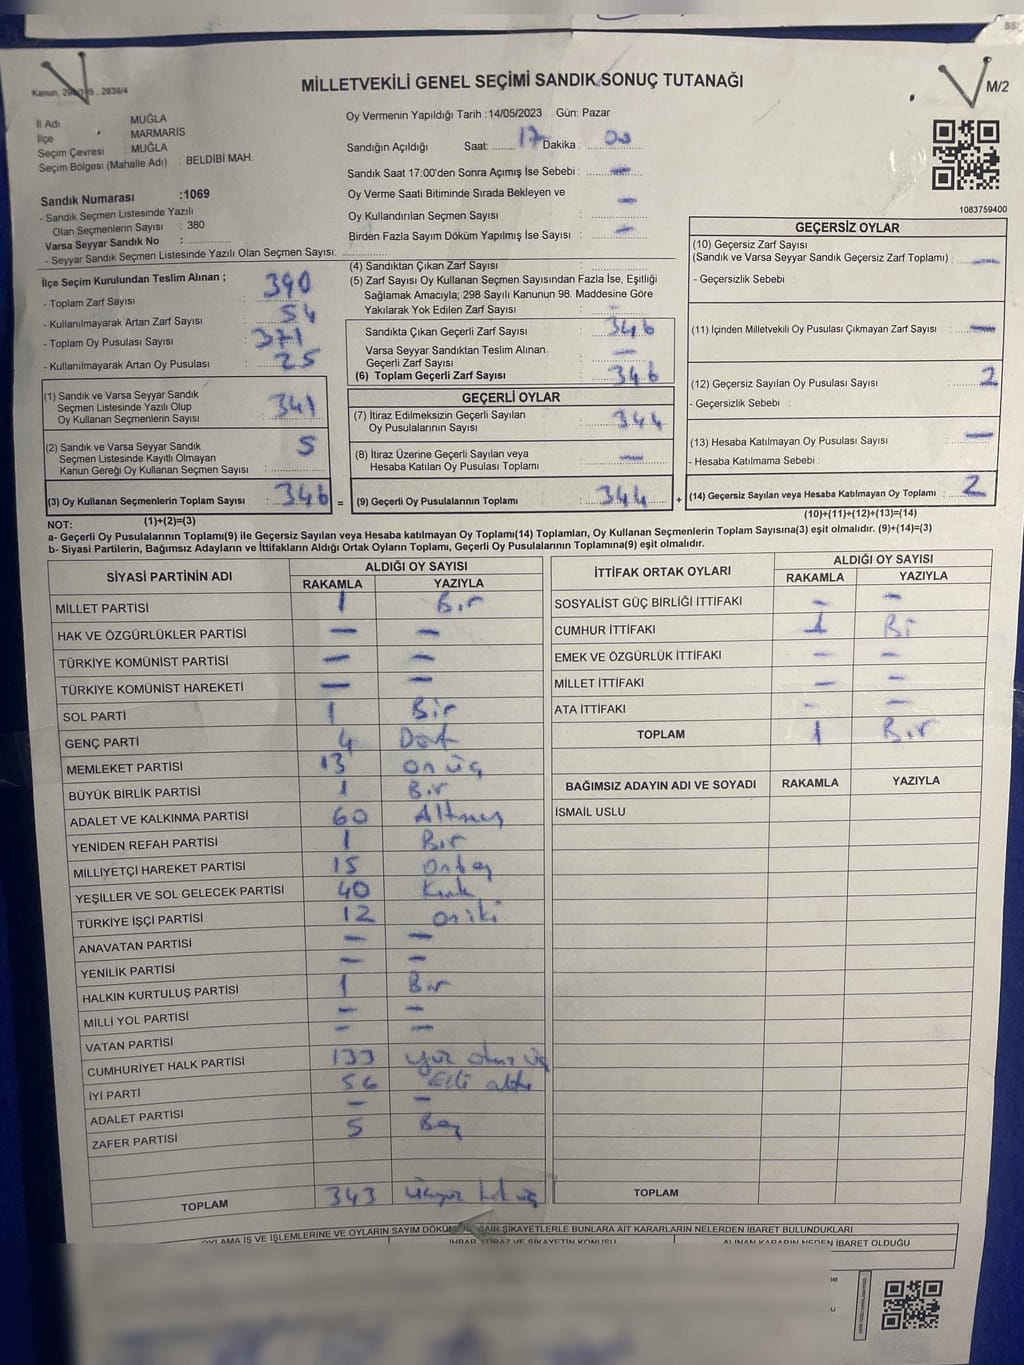 MİLLETVEKİLİ GENEL SEÇİMİ SANDIK SONUÇ TUTANAĞI
M/2
İl Adı : MUĞLA
İlçe : MARMARİS
Seçim Çevresi : MUĞLA
Seçim Bölgesi (Mahalle Adı) : BELDİBİ MAH.
Sandık Numarası :1069
- Sandık Seçmen Listesinde Yazılı
Olan Seçmenlerin Sayısı : 380
Varsa Seyyar Sandık No : ..............
- Seyyar Sandık Seçmen Listesinde Yazılı Olan Seçmen Sayısı: ..............
Oy Vermenin Yapıldığı Tarih :14/05/2023 Gün: Pazar
Sandığın Açıldığı Saat: 17 Dakika : 00
Sandık Saat 17:00'den Sonra Açmış İse Sebebi : —
Oy Verme Saati Bitiminde Sırada Bekleyen ve
Oy Kullandırılan Seçmen Sayısı : —
Birden Fazla Sayım Döküm Yapılmış İse Sayısı : —
1083759400
İlçe Seçim Kurulundan Teslim Alınan ;
- Toplam Zarf Sayısı : 390
- Kullanılmayarak Artan Zarf Sayısı : 54
- Toplam Oy Pusulası Sayısı : 371
- Kullanılmayarak Artan Oy Pusulası : 25
(1) Sandık ve Varsa Seyyar Sandık
Seçmen Listesinde Yazılı Olup
Oy Kullanan Seçmenlerin Sayısı : 341
(2) Sandık ve Varsa Seyyar Sandık
Seçmen Listesinde Kayıtlı Olmayan
Kanun Gereği Oy Kullanan Seçmen Sayısı : 5
(3) Oy Kullanan Seçmenlerin Toplam Sayısı : 346 =
(1)+(2)=(3)
(4) Sandıktan Çıkan Zarf Sayısı : ..............
(5) Zarf Sayısı Oy Kullanan Seçmen Sayısından Fazla İse, Eşitliği
Sağlamak Amacıyla; 298 Sayılı Kanunun 98. Maddesine Göre
Yakılarak Yok Edilen Zarf Sayısı : —
Sandıkta Çıkan Geçerli Zarf Sayısı : 346
Varsa Seyyar Sandıktan Teslim Alınan
Geçerli Zarf Sayısı : —
(6) Toplam Geçerli Zarf Sayısı : 346
GEÇERLİ OYLAR
(7) İtiraz Edilmeksizin Geçerli Sayılan
Oy Pusulalarının Sayısı : 344
(8) İtiraz Üzerine Geçerli Sayılan veya
Hesaba Katılan Oy Pusulası Toplamı : —
(9) Geçerli Oy Pusulalarının Toplamı : 344 +
GEÇERSİZ OYLAR
(10) Geçersiz Zarf Sayısı
(Sandık ve Varsa Seyyar Sandık Geçersiz Zarf Toplamı) : —
- Geçersizlik Sebebi :
(11) İçinden Milletvekili Oy Pusulası Çıkmayan Zarf Sayısı : —
(12) Geçersiz Sayılan Oy Pusulası Sayısı : 2
- Geçersizlik Sebebi :
(13) Hesaba Katılmayan Oy Pusulası Sayısı : —
- Hesaba Katılmama Sebebi :
(14) Geçersiz Sayılan veya Hesaba Katılmayan Oy Toplamı : 2
(10)+(11)+(12)+(13)=(14)
NOT:
a- Geçerli Oy Pusulalarının Toplamı(9) ile Geçersiz Sayılan veya Hesaba katılmayan Oy Toplamı(14) Toplamları, Oy Kullanan Seçmenlerin Toplam Sayısına(3) eşit olmalıdır. (9)+(14)=(3)
b- Siyasi Partilerin, Bağımsız Adayların ve İttifakların Aldığı Ortak Oyların Toplamı, Geçerli Oy Pusulalarının Toplamına(9) eşit olmalıdır.
SİYASİ PARTİNİN ADI ALDIĞI OY SAYISI
RAKAMLA YAZIYLA
MİLLET PARTİSİ 1 Bir
HAK VE ÖZGÜRLÜKLER PARTİSİ — —
TÜRKİYE KOMÜNİST PARTİSİ — —
TÜRKİYE KOMÜNİST HAREKETİ — —
SOL PARTİ 1 Bir
GENÇ PARTİ 4 Dört
MEMLEKET PARTİSİ 13 on üç
BÜYÜK BİRLİK PARTİSİ 1 Bir
ADALET VE KALKINMA PARTİSİ 60 Altmış
YENİDEN REFAH PARTİSİ 1 Bir
MİLLİYETÇİ HAREKET PARTİSİ 15 Onbeş
YEŞİLLER VE SOL GELECEK PARTİSİ 40 Kırk
TÜRKİYE İŞÇİ PARTİSİ 12 on iki
ANAVATAN PARTİSİ — —
YENİLİK PARTİSİ — —
HALKIN KURTULUŞ PARTİSİ 1 Bir
MİLLİ YOL PARTİSİ — —
VATAN PARTİSİ — —
CUMHURİYET HALK PARTİSİ 133 yüz otuz üç
İYİ PARTİ 56 Elli altı
ADALET PARTİSİ — —
ZAFER PARTİSİ 5 Beş
TOPLAM 343 üçyüz kırk üç
İTTİFAK ORTAK OYLARI ALDIĞI OY SAYISI
RAKAMLA YAZIYLA
SOSYALİST GÜÇ BİRLİĞİ İTTİFAKI — —
CUMHUR İTTİFAKI 1 Bir
EMEK VE ÖZGÜRLÜK İTTİFAKI — —
MİLLET İTTİFAKI — —
ATA İTTİFAKI — —
TOPLAM 1 Bir
BAĞIMSIZ ADAYIN ADI VE SOYADI RAKAMLA YAZIYLA
İSMAİL USLU
TOPLAM
OYLAMA İŞ VE İŞLEMLERİNE VE OYLARIN SAYIM DÖKÜMÜNE DAİR ŞİKAYETLERLE BUNLARA AİT KARARLARIN NELERDEN İBARET BULUNDUKLARI
İHBAR İTİRAZ VE ŞİKAYETİN KONUSU ALINAN KARARIN NEDEN İBARET OLDUĞU